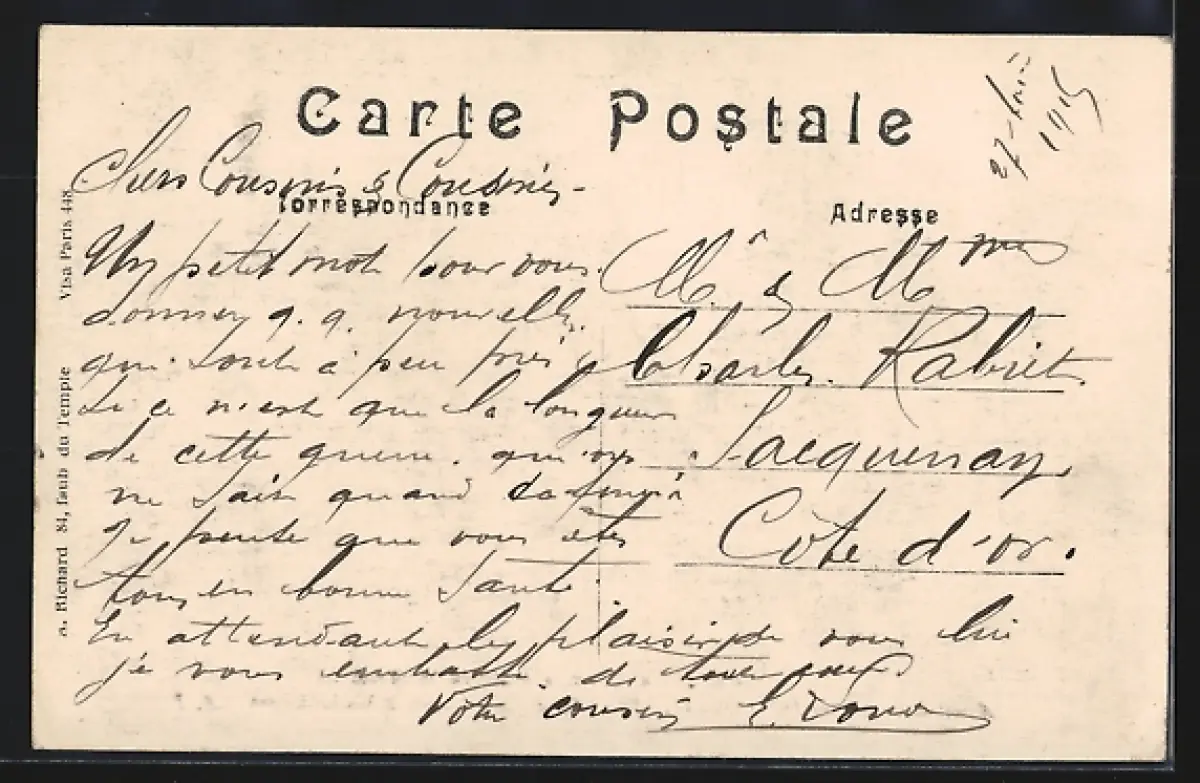 Carte Postale
27- 1915
Chers Cousins & Cousines -
Correspondance
Un petit mot pour vous
donner q. q. nouvelles
qui sont à peu près
si ce n'est que la longueur
de cette guerre. que
ne sait quand
je pense que vous êtes
tous en bonne santé.
En attendant le plaisir de vous lire
je vous embrasse de tout coeur
Votre cousin E.
Adresse
Mr & Mme
Charles Rabiet
Sacquenay
Côte d'or.
a. Richard 84, faub du Temple Visa Paris 448